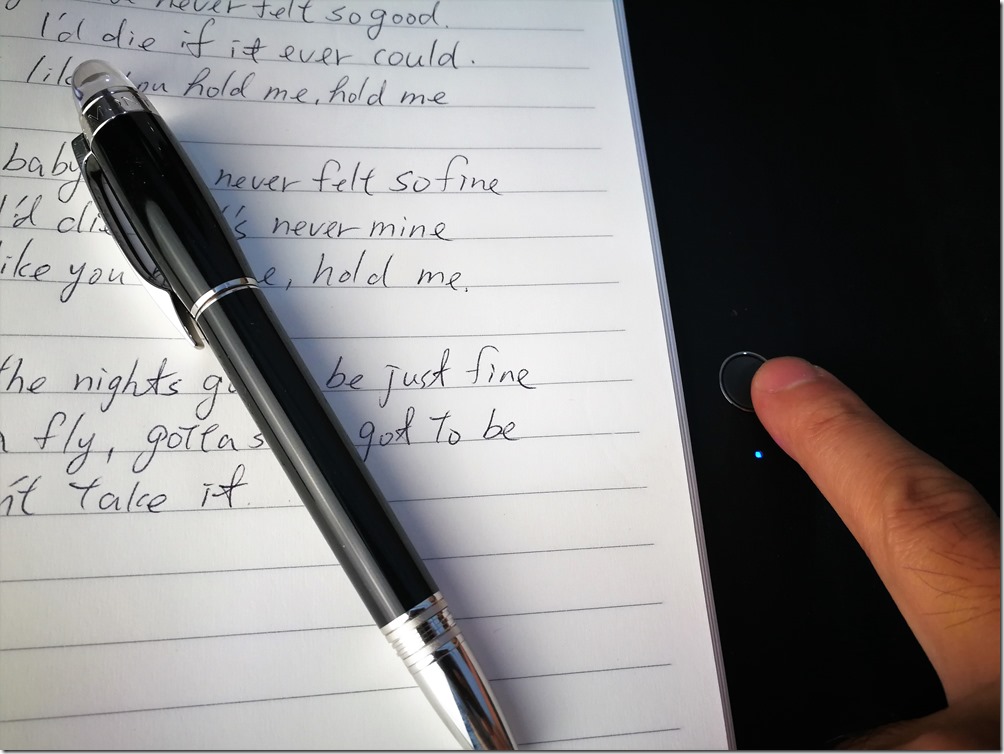 never felt so good.
I'd die if it ever could.
like you hold me, hold me
baby never felt so fine
I'd die 's never mine
like you e, hold me.
the nights go be just fine
fly, gotta s got to be
n't take it.